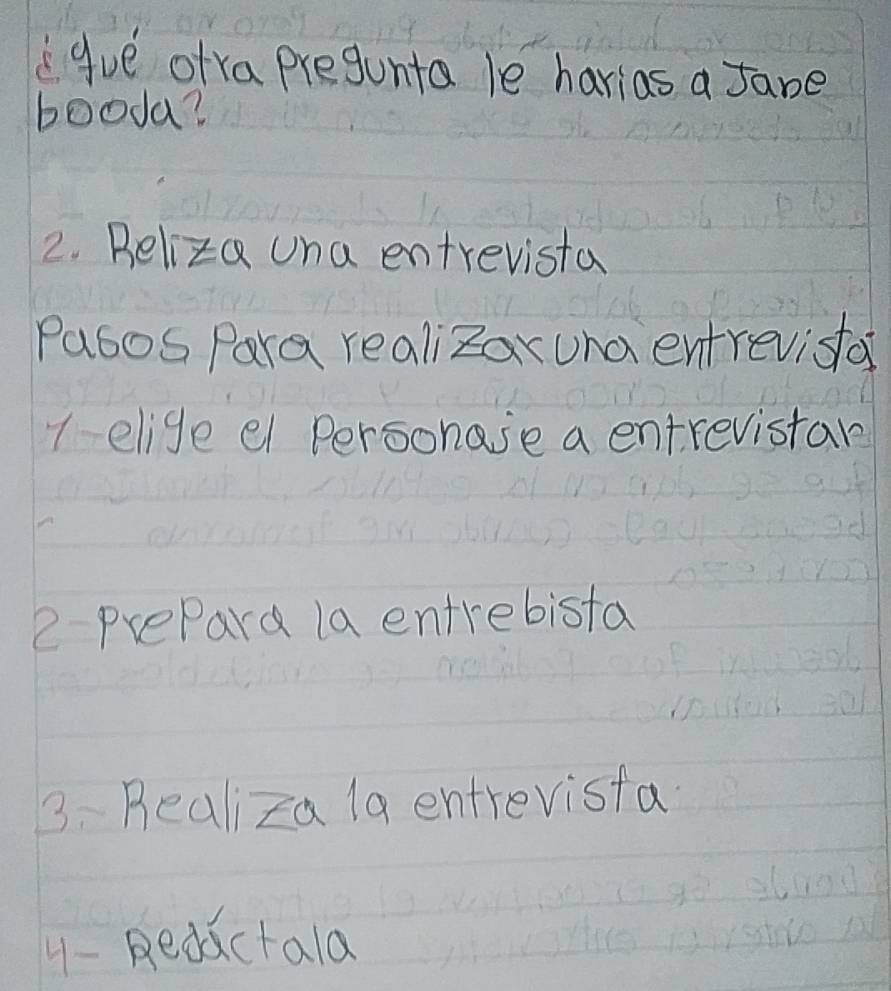 ¿qué otra pregunta le harias a Jane
booda?
2. Reliza una entrevista
Pasos Para realizar una entrevista
1-elige el Personaje a entrevistar
2-prePara la entrebista
3.-Realiza la entrevista
4-Redáctala